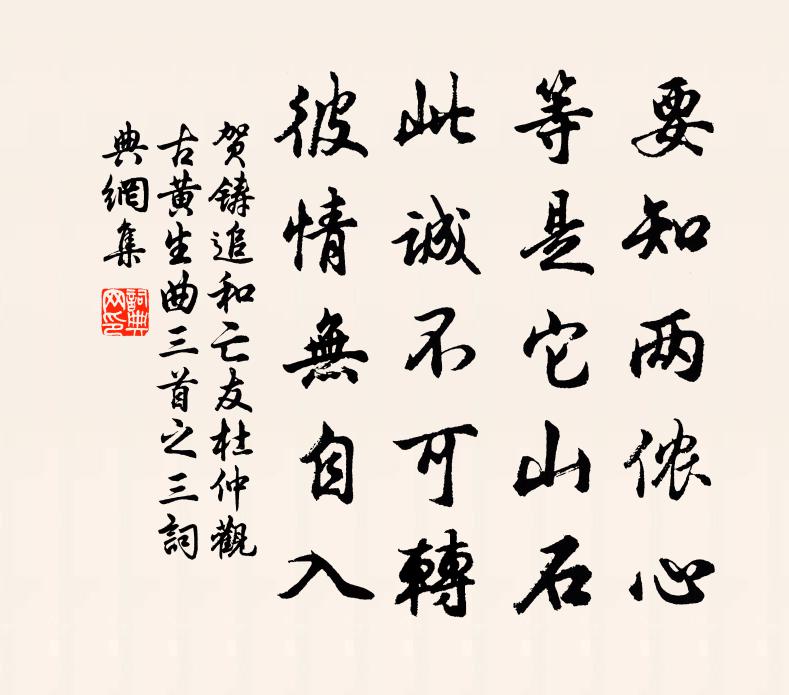 要知两侬心
等是它山石
此诚不可轉
彼情無自入
贺铸追和亡友杜仲觀
古黄生曲三首之三詞
典網集
詞典
网印